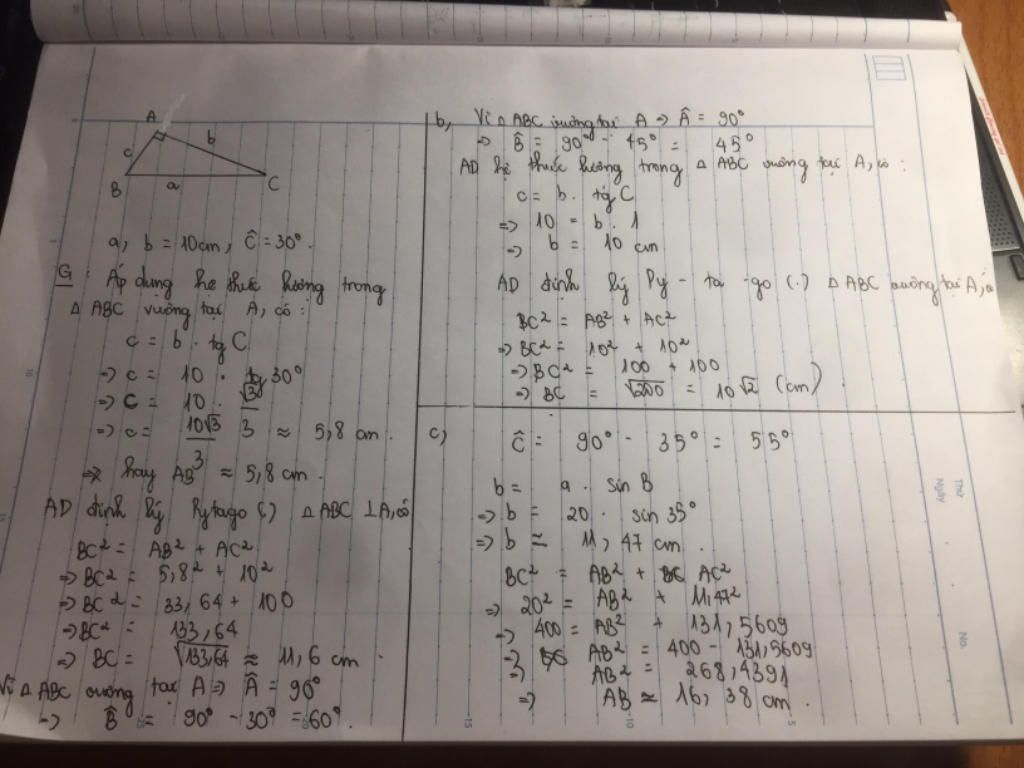 A
c
b
B
a
C
a, b = 10cm, Ĉ = 30°.
G: Áp dụng hệ thức lượng trong
△ ABC vuông tại A, có:
c = b . tg C
=> c = 10 . tg 30°
=> c = 10 . √30 / 3
=> c = 10√3 / 3 ≈ 5,8 cm.
=> hay AB ≈ 5,8 cm.
AD định lý Pytago (.) △ ABC ⊥ A, có
BC² = AB² + AC²
=> BC² = 5,8² + 10²
=> BC² = 33,64 + 100
=> BC² = 133,64
=> BC = √133,64 ≈ 11,6 cm.
Vì △ ABC vuông tại A => Â = 90°
=> B̂ = 90° - 30° = 60°.
b, Vì △ ABC vuông tại A => Â = 90°
=> B̂ = 90° - 45° = 45°
AD hệ thức lượng trong △ ABC vuông tại A, có:
c = b . tg C
=> 10 = b . 1
=> b = 10 cm
AD định lý Py-ta-go (.) △ ABC vuông tại A, có
BC² = AB² + AC²
=> BC² = 10² + 10²
=> BC² = 100 + 100
=> BC = √200 = 10√2 (cm).
c, Ĉ = 90° - 35° = 55°
b = a . sin B
=> b = 20 . sin 35°
=> b ≈ 11,47 cm.
BC² = AB² + AC²
=> 20² = AB² + 11,47²
=> 400 = AB² + 131,5609
=> AB² = 400 - 131,5609
=> AB² = 268,4391
=> AB ≈ 16,38 cm.
Thứ
Ngày
No.
10
15
-15
-10
-5